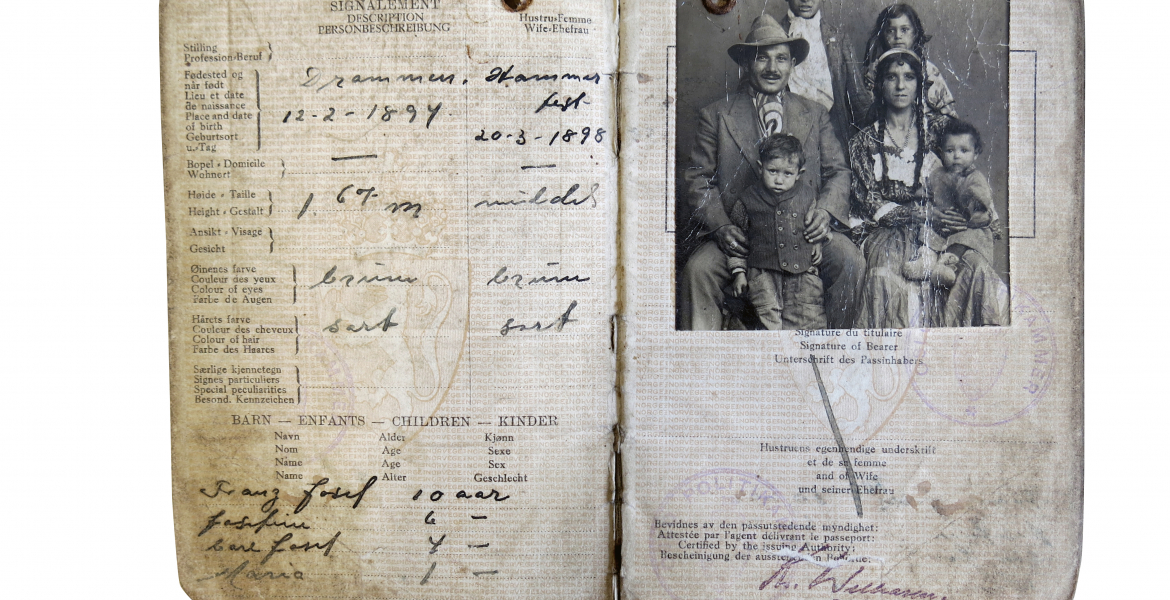 SIGNALEMENT
DESCRIPTION
PERSONBESCHREIBUNG
Hustru-Femme
Wife-Ehefrau
Stilling
Profession-Beruf
Fødested og
når født
Lieu et date
de naissance
Place and date
of birth
Geburtsort
u. Tag
Drammen. Hammer
fest
12-2-1897.
20-3-1898
Bopel - Domicile
Wohnert
Høide - Taille
Height - Gestalt
1.67 m middels
Ansikt - Visage
Gesicht
Øinenes farve
Couleur des yeux
Colour of eyes
Farbe de Augen
brune brune
Hårets farve
Couleur des cheveux
Colour of hair
Farbe des Haares
sort sort
Særlige kjennetegn
Signes particuliers
Special peculiarities
Besond. Kennzeichen
BARN — ENFANTS — CHILDREN — KINDER
Navn Alder Kjønn
Nom Age Sexe
Name Age Sex
Name Alter Geschlecht
Franz Josef 10 aar
Josefine 6 —
Carl Josef 4 —
Maria 1 —
Signature du titulaire
Signature of Bearer
Unterschrift des Passinhabers
Hustruens egenhendige underskrift
et de sa femme
and of Wife
und seiner Ehefrau
Bevidnes av den passutstedende myndighet:
Attestée par l'agent délivrant le passeport:
Certified by the issuing Authority:
Bescheinigung der ausstellenden